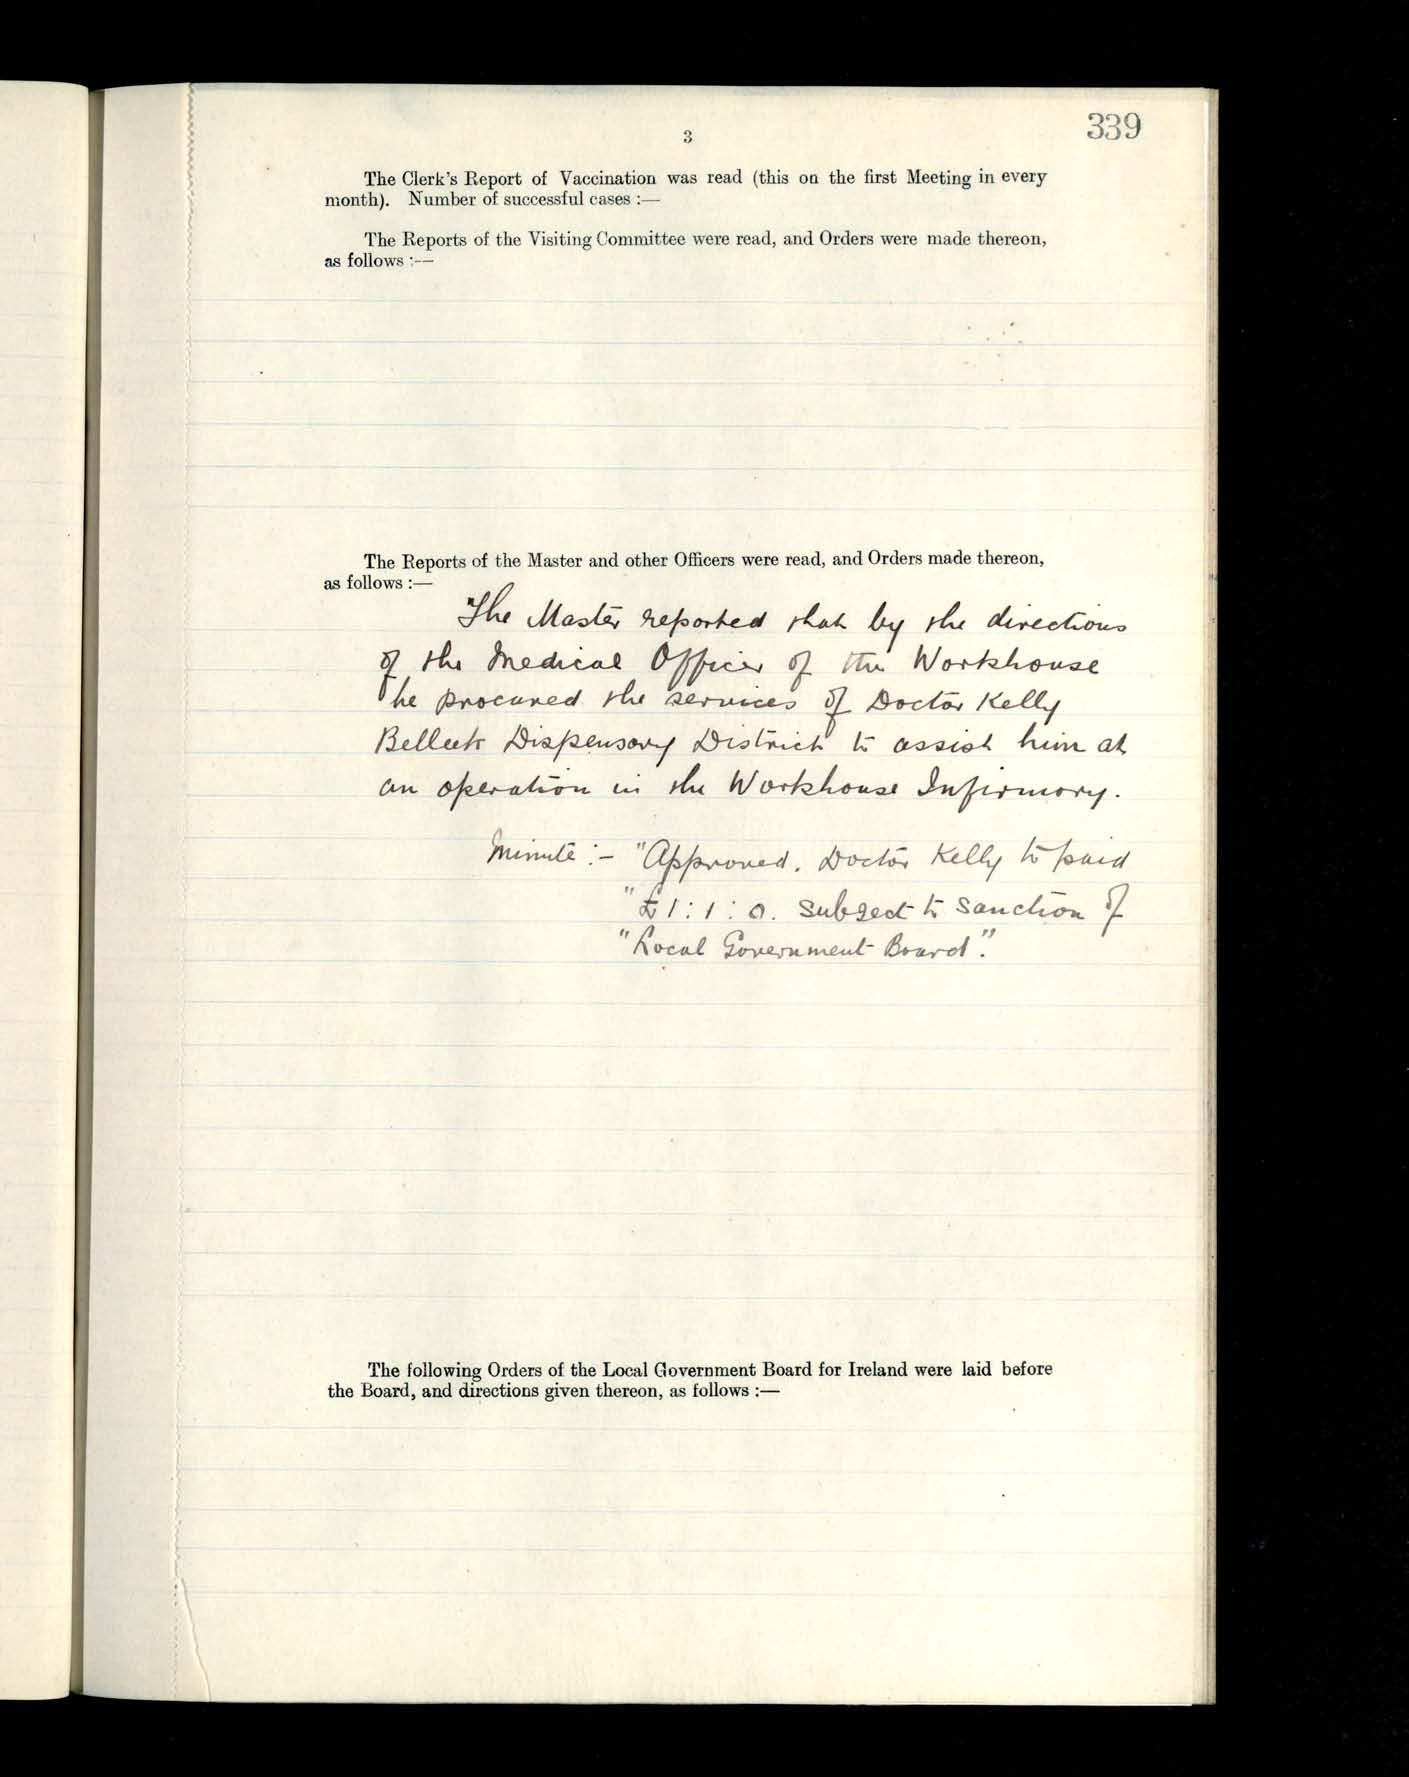 339
3
The Clerk's Report of Vaccination was read (this on the first Meeting in every
month). Number of successful cases :—
The Reports of the Visiting Committee were read, and Orders were made thereon,
as follows :—
The Reports of the Master and other Officers were read, and Orders made thereon,
as follows :—
The Master reported that by the directions
of the Medical Officer of the Workhouse
he procured the services of Doctor Kelly
Belleek Dispensary District to assist him at
an operation in the Workhouse Infirmary.
Minute :- "Approved. Doctor Kelly to paid
"£1 : 1 : 0. subject to sanction of
"Local Government Board".
The following Orders of the Local Government Board for Ireland were laid before
the Board, and directions given thereon, as follows :—